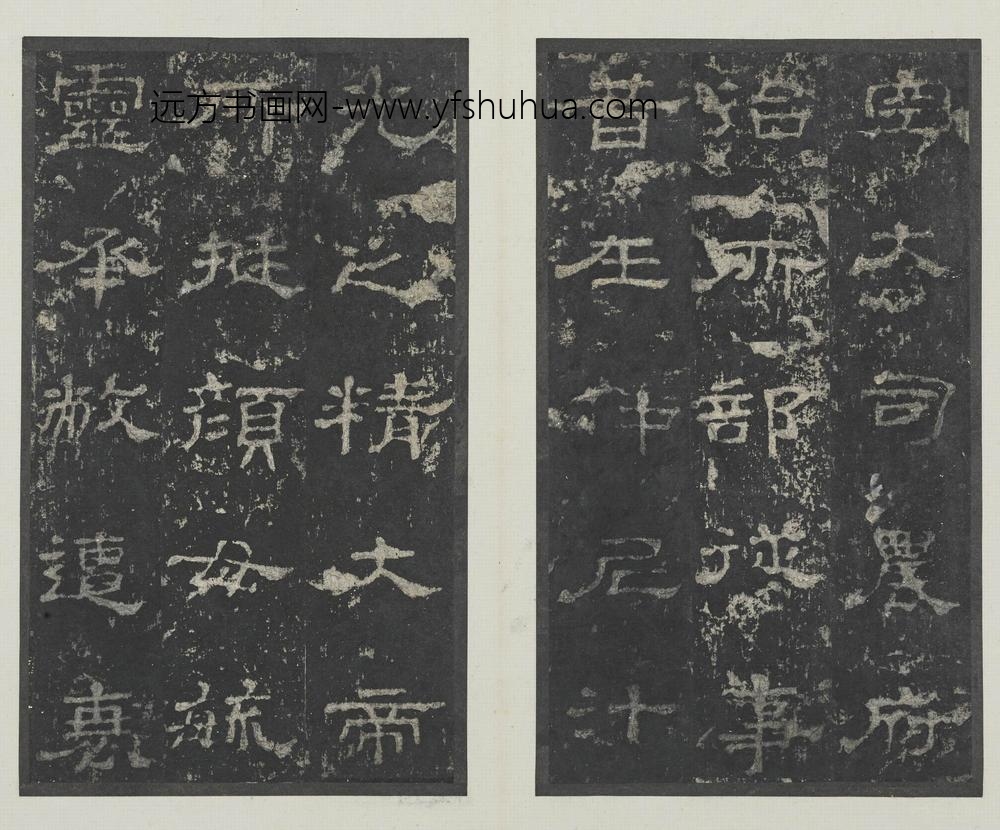 远方书画网-www.yfshuhua.com
空大司農府
治所部從事
昔在仲尼汁
光之精大帝
所挺顏母毓
靈承敝遭衰